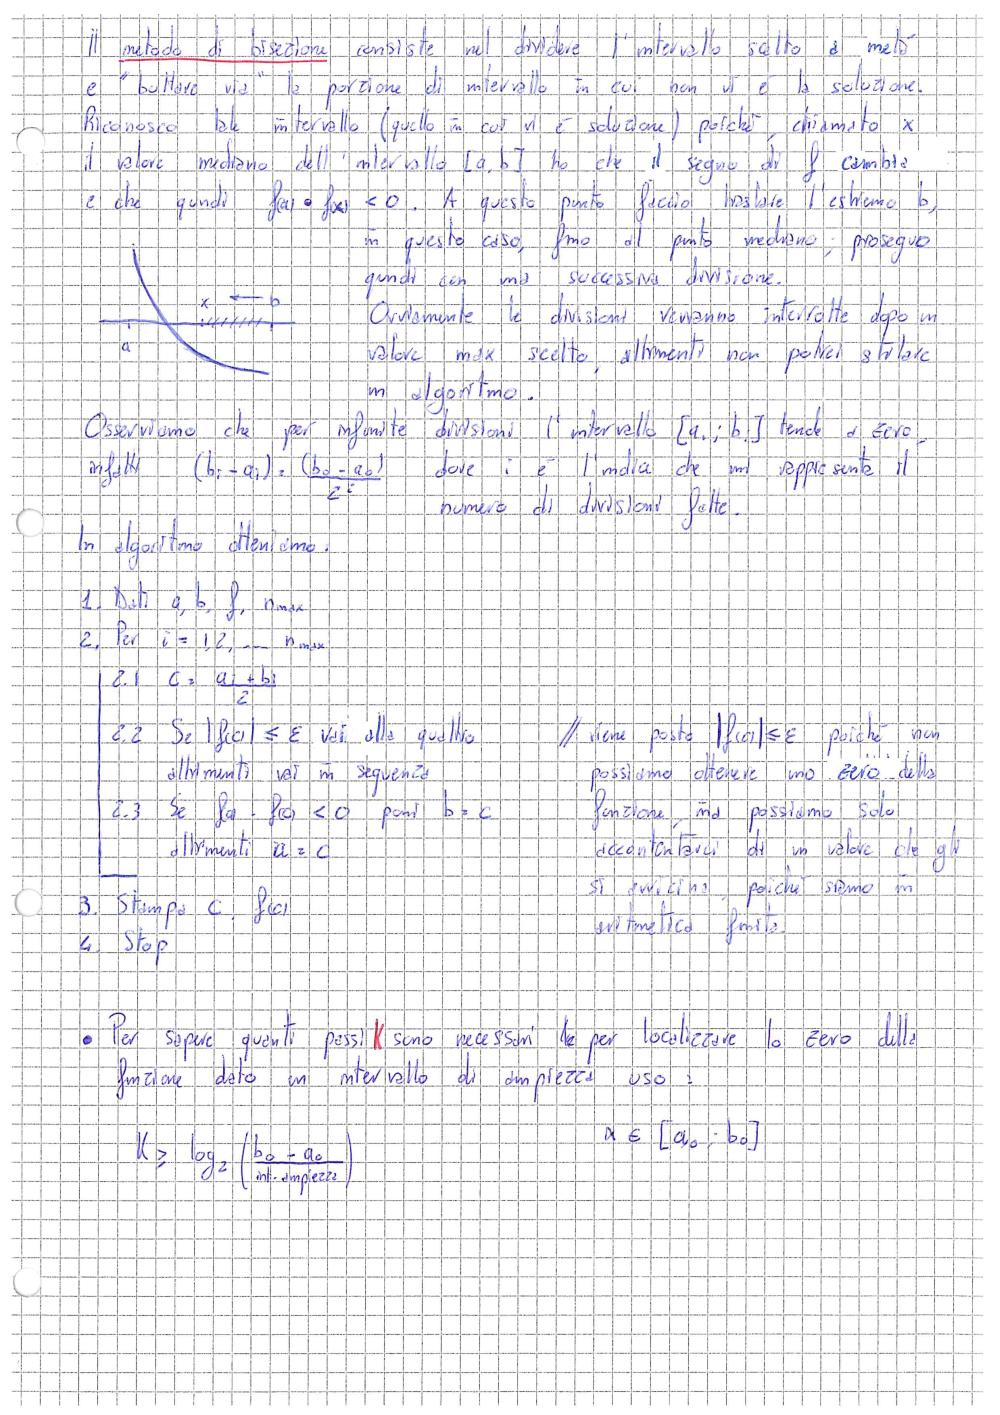 Il metodo di bisezione consiste nel dividere l'intervallo scelto a metà
e "buttare via" la porzione di intervallo in cui non vi è la soluzione.
Riconosco tale intervallo (quello in cui vi è soluzione) poiché, chiamato x
il valore mediano dell'intervallo [a,b] ho che il segno di f cambia
e che quindi f(a) • f(x) < 0. A questo punto faccio traslare l'estremo b,
in questo caso, fino al punto mediano; proseguo
quindi con una successiva divisione.
x b
a
Ovviamente le divisioni verranno interrotte dopo un
valore max scelto, altrimenti non potrei stilare
un algoritmo.
Osserviamo che per infinite divisioni l'intervallo [aᵢ; bᵢ] tende a zero,
infatti (bᵢ - aᵢ) = (b₀ - a₀) / 2ⁱ dove i è l'indice che mi rappresenta il
numero di divisioni fatte.
In algoritmo otteniamo:
1. Dati a, b, f, nmax
2. Per i = 1,2, ... nmax
2.1 c = aᵢ + bᵢ / 2
2.2 Se |f(c)| ≤ ε vai alla quattro
altrimenti vai in sequenza
2.3 Se f(a) · f(c) < 0 poni b = c
altrimenti a = c
3. Stampa c, f(c)
4. Stop
// viene posto |f(c)| ≤ ε poiché non
possiamo ottenere uno "zero" della
funzione, ma possiamo solo
accontentarci di un valore che gli
si avvicina, poiché siamo in
aritmetica finita.
• Per sapere quanti passi K sono necessari per localizzare lo zero della
funzione dato un intervallo di ampiezza uso:
K ≥ log₂ (b₀ - a₀ / int. ampiezza)
x ∈ [a₀; b₀]